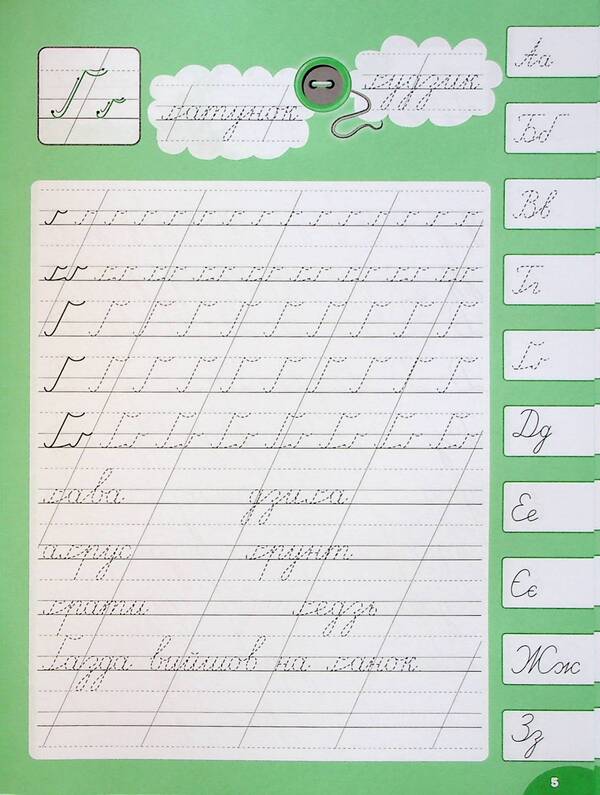 Ґ ґ
ґатунок ґудзик
ґ ґ ґ ґ ґ ґ ґ ґ ґ ґ ґ ґ ґ ґ ґ
ґґ ґґ ґґ ґґ ґґ ґґ ґґ ґґ ґґ ґґ ґґ ґґ
Ґ Ґ Ґ Ґ Ґ Ґ Ґ Ґ Ґ Ґ
Ґ Ґ Ґ Ґ Ґ Ґ Ґ Ґ Ґ Ґ
Ґґ Ґґ Ґґ Ґґ Ґґ Ґґ Ґґ Ґґ
ґава дзиґа
аґрус ґрунт
ґрати ґедзь
Ґазда вийшов на ґанок
Аа
Бб
Вв
Гг
Ґґ
Дд
Ее
Єє
Жж
Зз
5